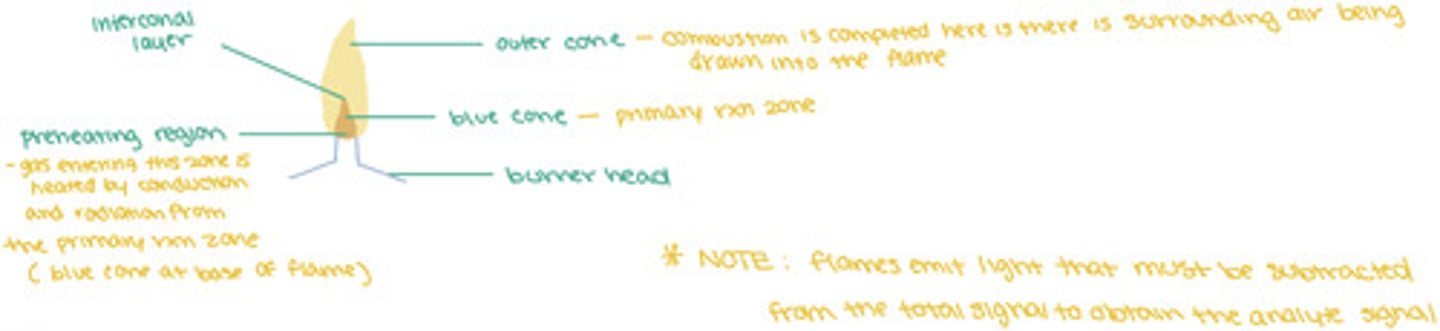 interconal
layer
outer cone — combustion is completed here is there is surrounding air being
drawn into the flame
blue cone — primary rxn zone
preheating region
- gas entering this zone is
heated by conduction
and radiation from
the primary rxn zone
( blue cone at base of flame)
burner head
* NOTE: flames emit light that must be subtracted
from the total signal to obtain the analyte signal